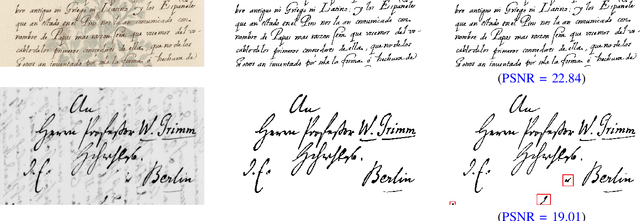 bre antiguo ni Griego ni Latino; y los Españoles
que an estado en el Piru nos la an comunicado con
nombre de Papas mas razon sera que usemos del vo-
cablo de los primeros comedores de ellas, que no de los
an inventado por sola la forma o hechura de
bre antiguo ni Griego ni Latino; y los Españoles
que an estado en el Piru nos la an comunicado con
nombre de Papas mas razon sera que usemos del vo-
cablo de los primeros comedores de ellas, que no de los
an inventado por sola la forma o hechura de
bre antiguo ni Griego ni Latino; y los Españoles
que an estado en el Piru nos la an comunicado con
nombre de Papas mas razon sera que usemos del vo-
cablo de los primeros comedores de ellas, que no de los
an inventado por sola la forma o hechura de
(PSNR = 22.84)
An
Herrn Professor W. Grimm
Berlin
An
Herrn Professor W. Grimm
Berlin
An
Herrn Professor W. Grimm
Berlin
(PSNR = 19.01)